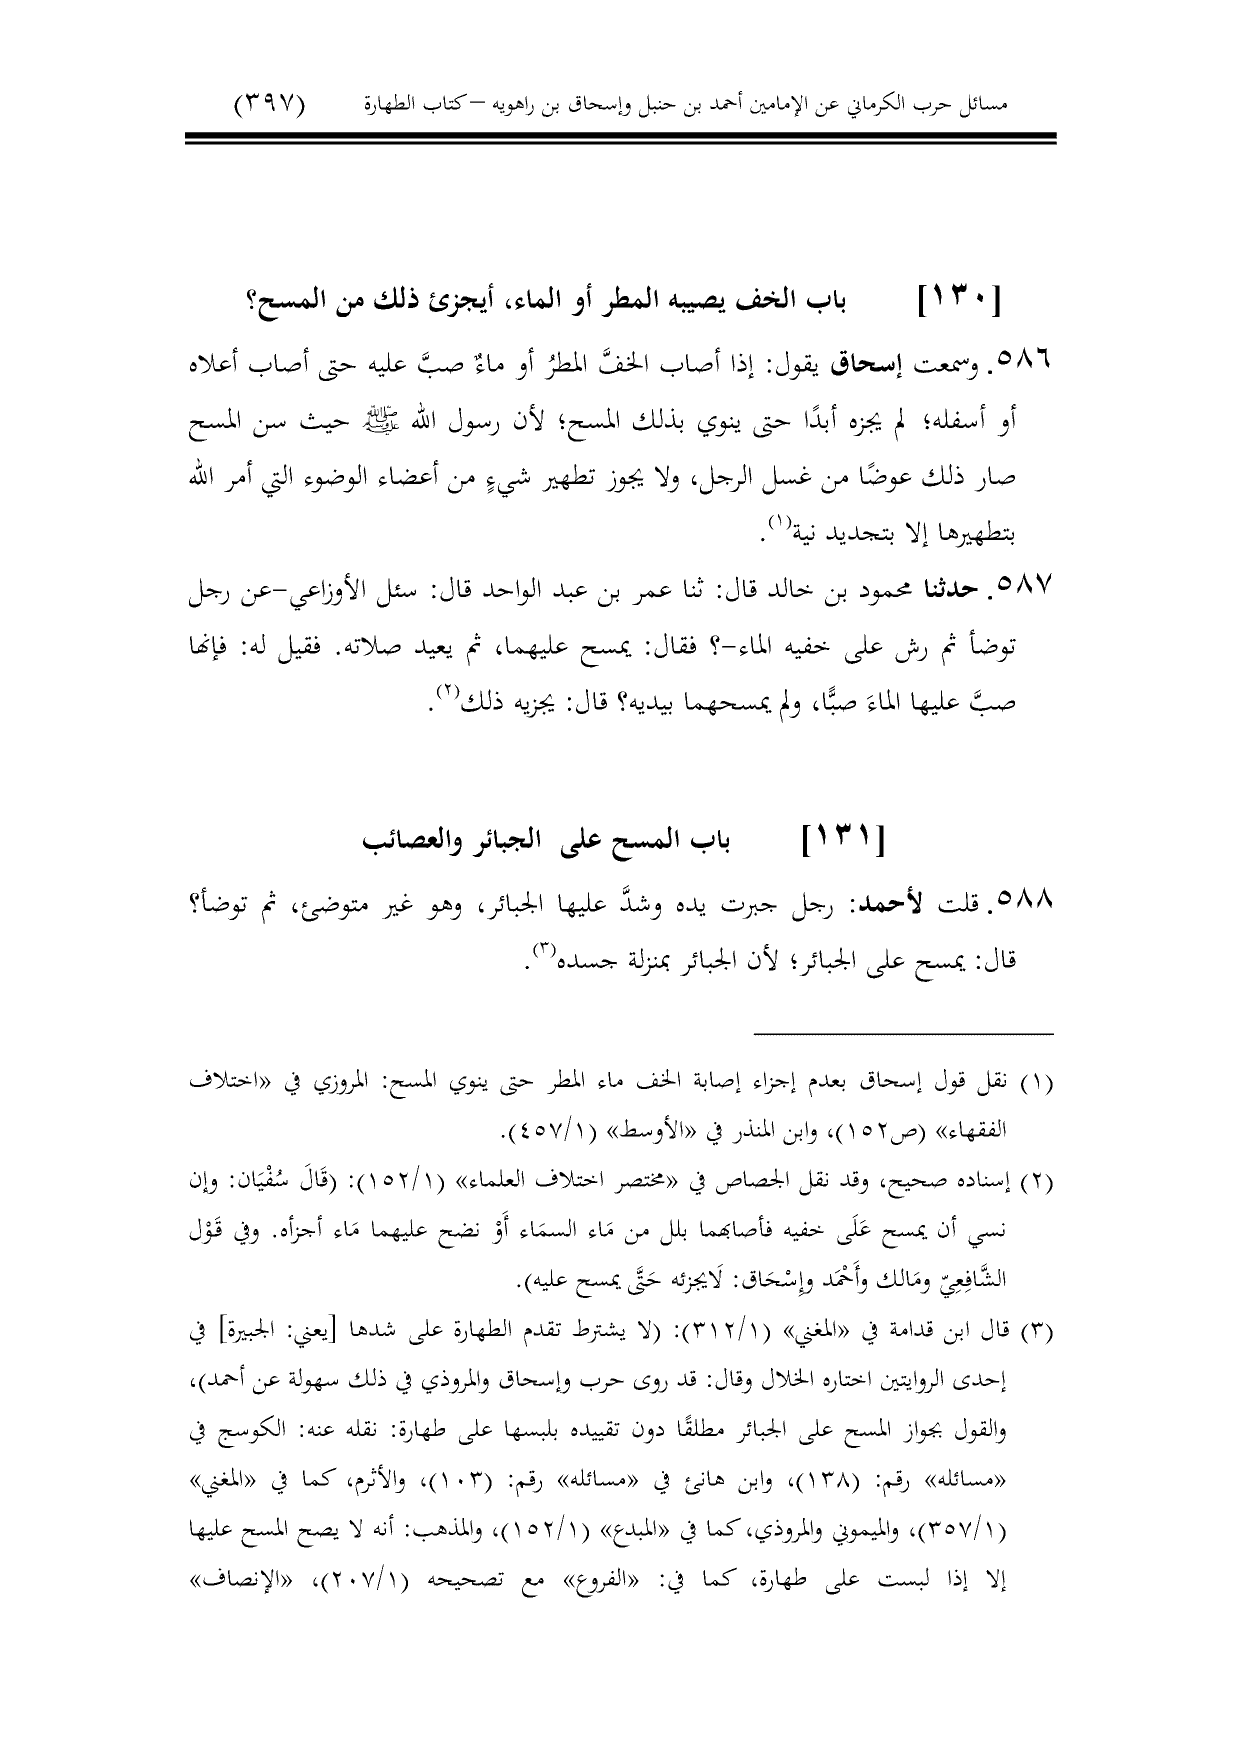 مسائل حرب الكرماني عن الإمامين أحمد بن حنبل وإسحاق بن راهويه – كتاب الطهارة (٣٩٧)
[١٣٠] باب الخف يصيبه المطر أو الماء، أيجزئ ذلك من المسح؟
٥٨٦. وسمعت إسحاق يقول: إذا أصاب الخفَّ المطرُ أو ماءٌ صبَّ عليه حتى أصاب أعلاه
أو أسفله؛ لم يجزه أبدًا حتى ينوي بذلك المسح؛ لأن رسول الله ﷺ حيث سن المسح
صار ذلك عوضًا من غسل الرجل، ولا يجوز تطهير شيءٍ من أعضاء الوضوء التي أمر الله
بتطهيرها إلا بتجديد نية(١).
٥٨٧. حدثنا محمود بن خالد قال: ثنا عمر بن عبد الواحد قال: سئل الأوزاعي-عن رجل
توضأ ثم رش على خفيه الماء-؟ فقال: يمسح عليهما، ثم يعيد صلاته. فقيل له: فإنها
صبَّ عليها الماءَ صبًّا، ولم يمسحهما بيديه؟ قال: يجزيه ذلك(٢).
[١٣١] باب المسح على الجبائر والعصائب
٥٨٨. قلت لأحمد: رجل جبرت يده وشدَّ عليها الجبائر، وهو غير متوضئ، ثم توضأ؟
قال: يمسح على الجبائر؛ لأن الجبائر بمنزلة جسده(٣).
(١) نقل قول إسحاق بعدم إجزاء إصابة الخف ماء المطر حتى ينوي المسح: المروزي في «اختلاف
الفقهاء» (ص١٥٢)، وابن المنذر في «الأوسط» (٤٥٧/١).
(٢) إسناده صحيح، وقد نقل الجصاص في «مختصر اختلاف العلماء» (١٥٢/١): (قَالَ سُفْيَان: وإن
نسي أن يمسح عَلَى خفيه فأصابهما بلل من مَاء السمَاء أَوْ نضح عليهما مَاء أجزأه. وفي قَوْل
الشَّافِعِيّ ومَالك وأَحْمَد وإِسْحَاق: لَايجزئه حَتَّى يمسح عليه).
(٣) قال ابن قدامة في «المغني» (٣١٢/١): (لا يشترط تقدم الطهارة على شدها [يعني: الجبيرة] في
إحدى الروايتين اختاره الخلال وقال: قد روى حرب وإسحاق والمروذي في ذلك سهولة عن أحمد)،
والقول بجواز المسح على الجبائر مطلقًا دون تقييده بلبسها على طهارة: نقله عنه: الكوسج في
«مسائله» رقم: (١٣٨)، وابن هانئ في «مسائله» رقم: (١٠٣)، والأثرم، كما في «المغني»
(٣٥٧/١)، والميموني والمروذي، كما في «المبدع» (١٥٢/١)، والمذهب: أنه لا يصح المسح عليها
إلا إذا لبست على طهارة، كما في: «الفروع» مع تصحيحه (٢٠٧/١)، «الإنصاف»